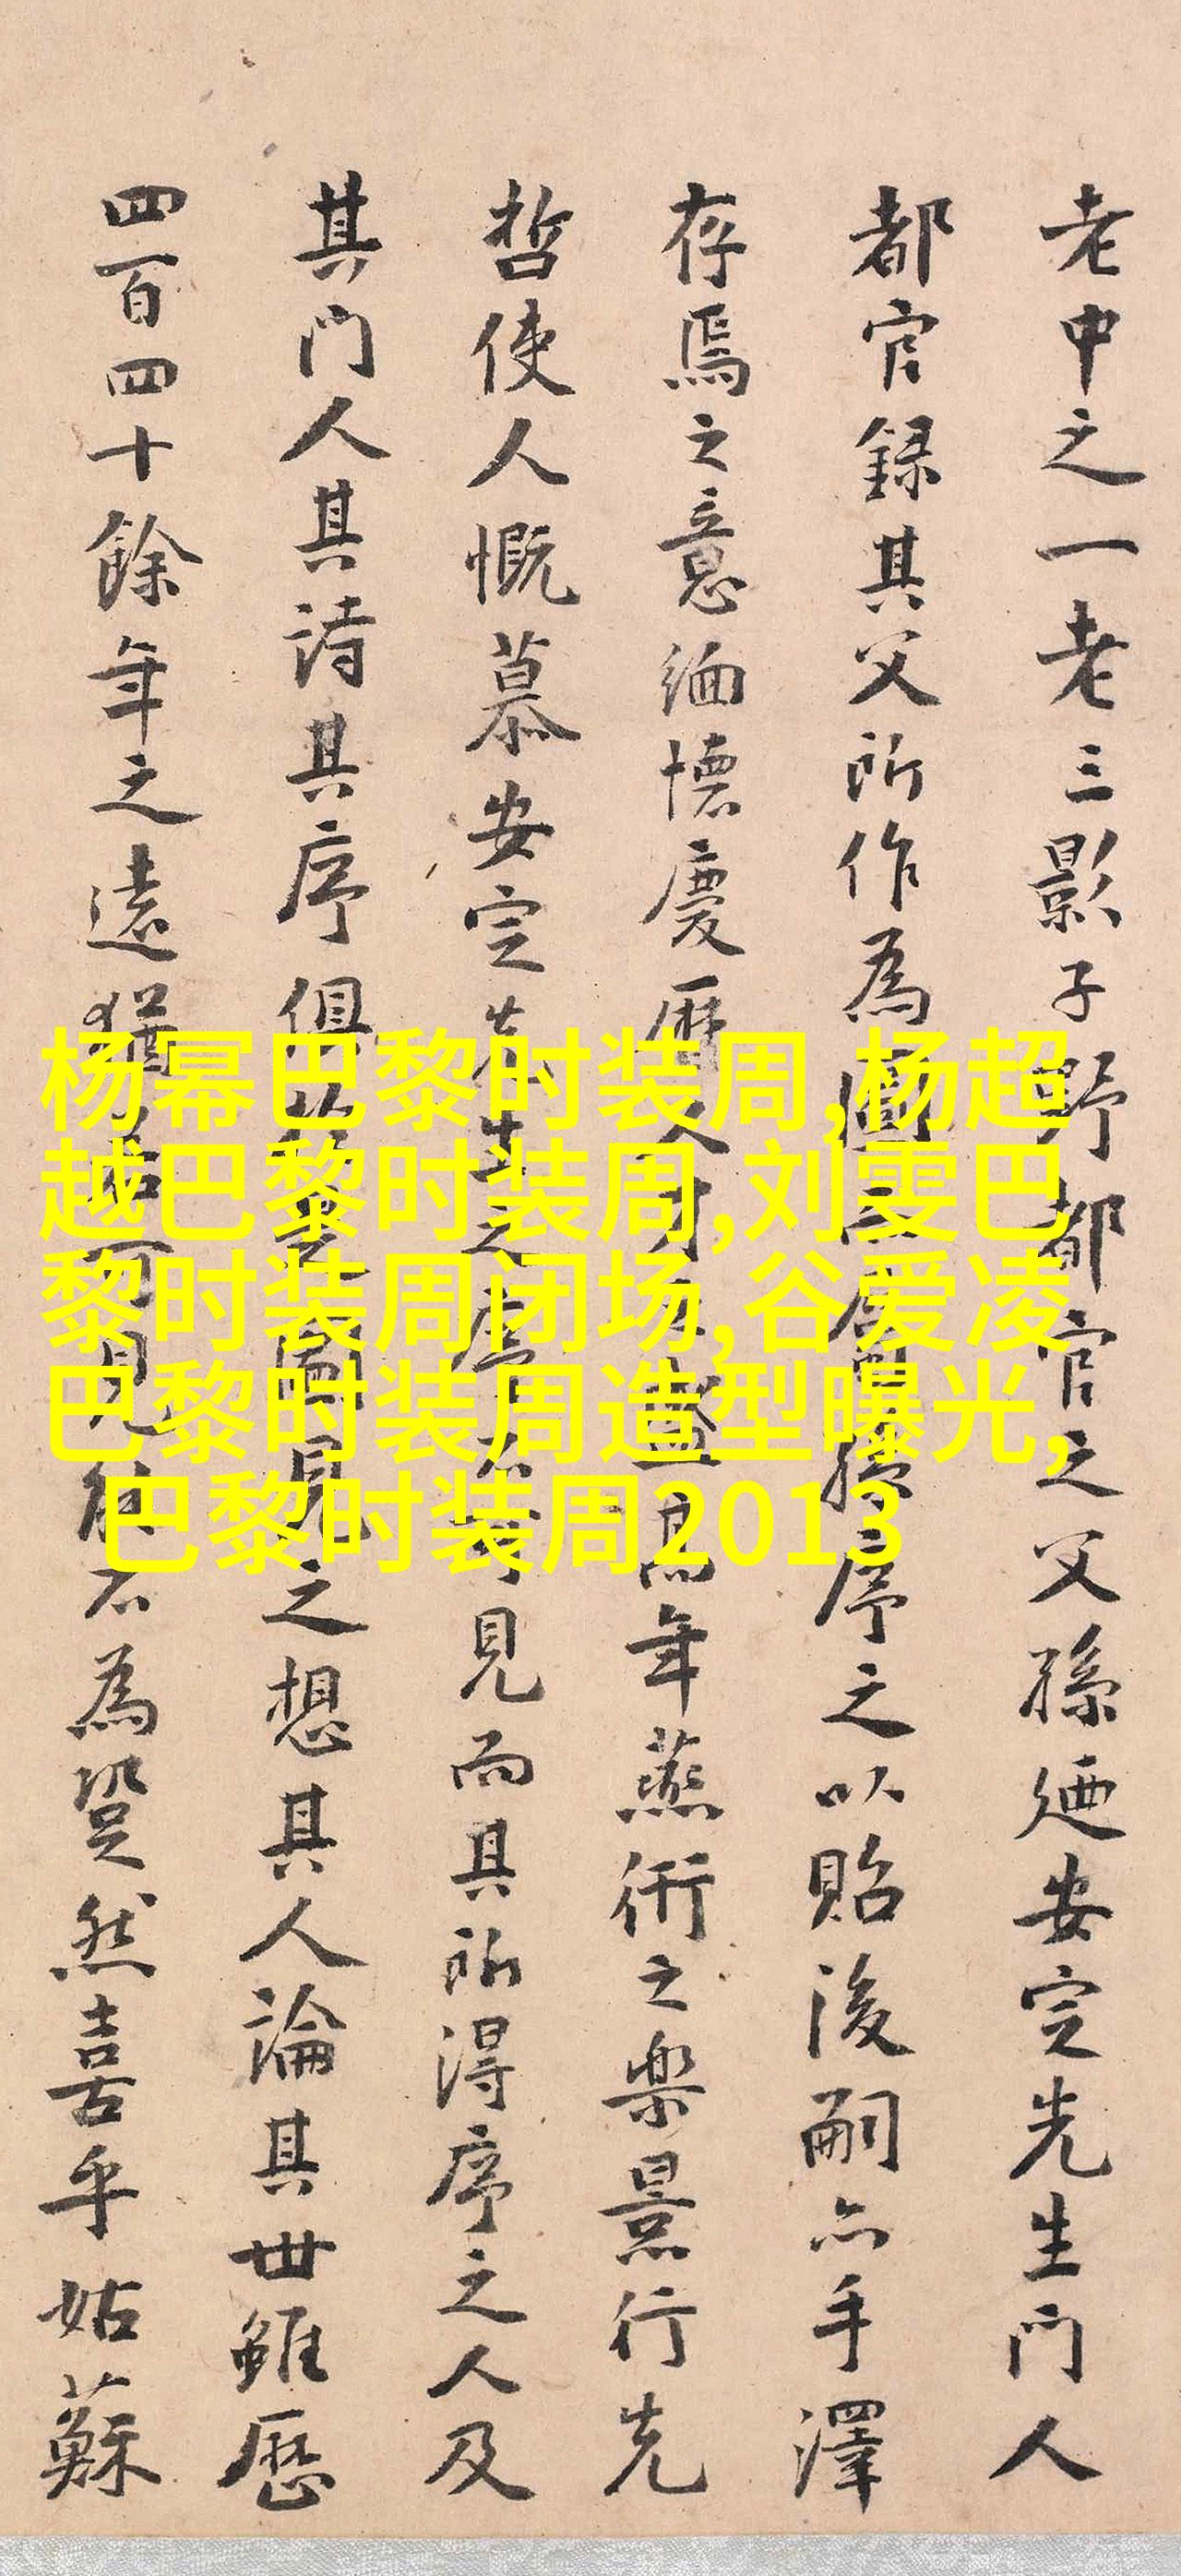 老中之一老三影子野都官之父孫廼安定先生門人
都官録其父所作為圖序之以貽後嗣亦手澤
存焉之意緬懷慶曆人才之盛高年燕衎之樂景行先
哲使人慨慕安定先生之見而其所得序之人及
其門人其詩其序俱圖見之想其人論其世雖歷
四百四十餘年之遠猶若可見能不為跫然喜乎姑蘇
杨幂巴黎时装周,杨超
越巴黎时装周,刘雯巴
黎时装周闭场,谷爱凌
巴黎时装周造型曝光,
巴黎时装周2013